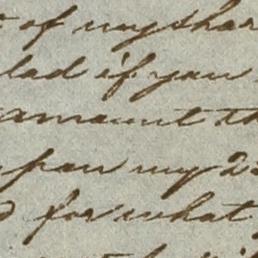 of my shar
lad if you
amount th
upon my 2
d for what